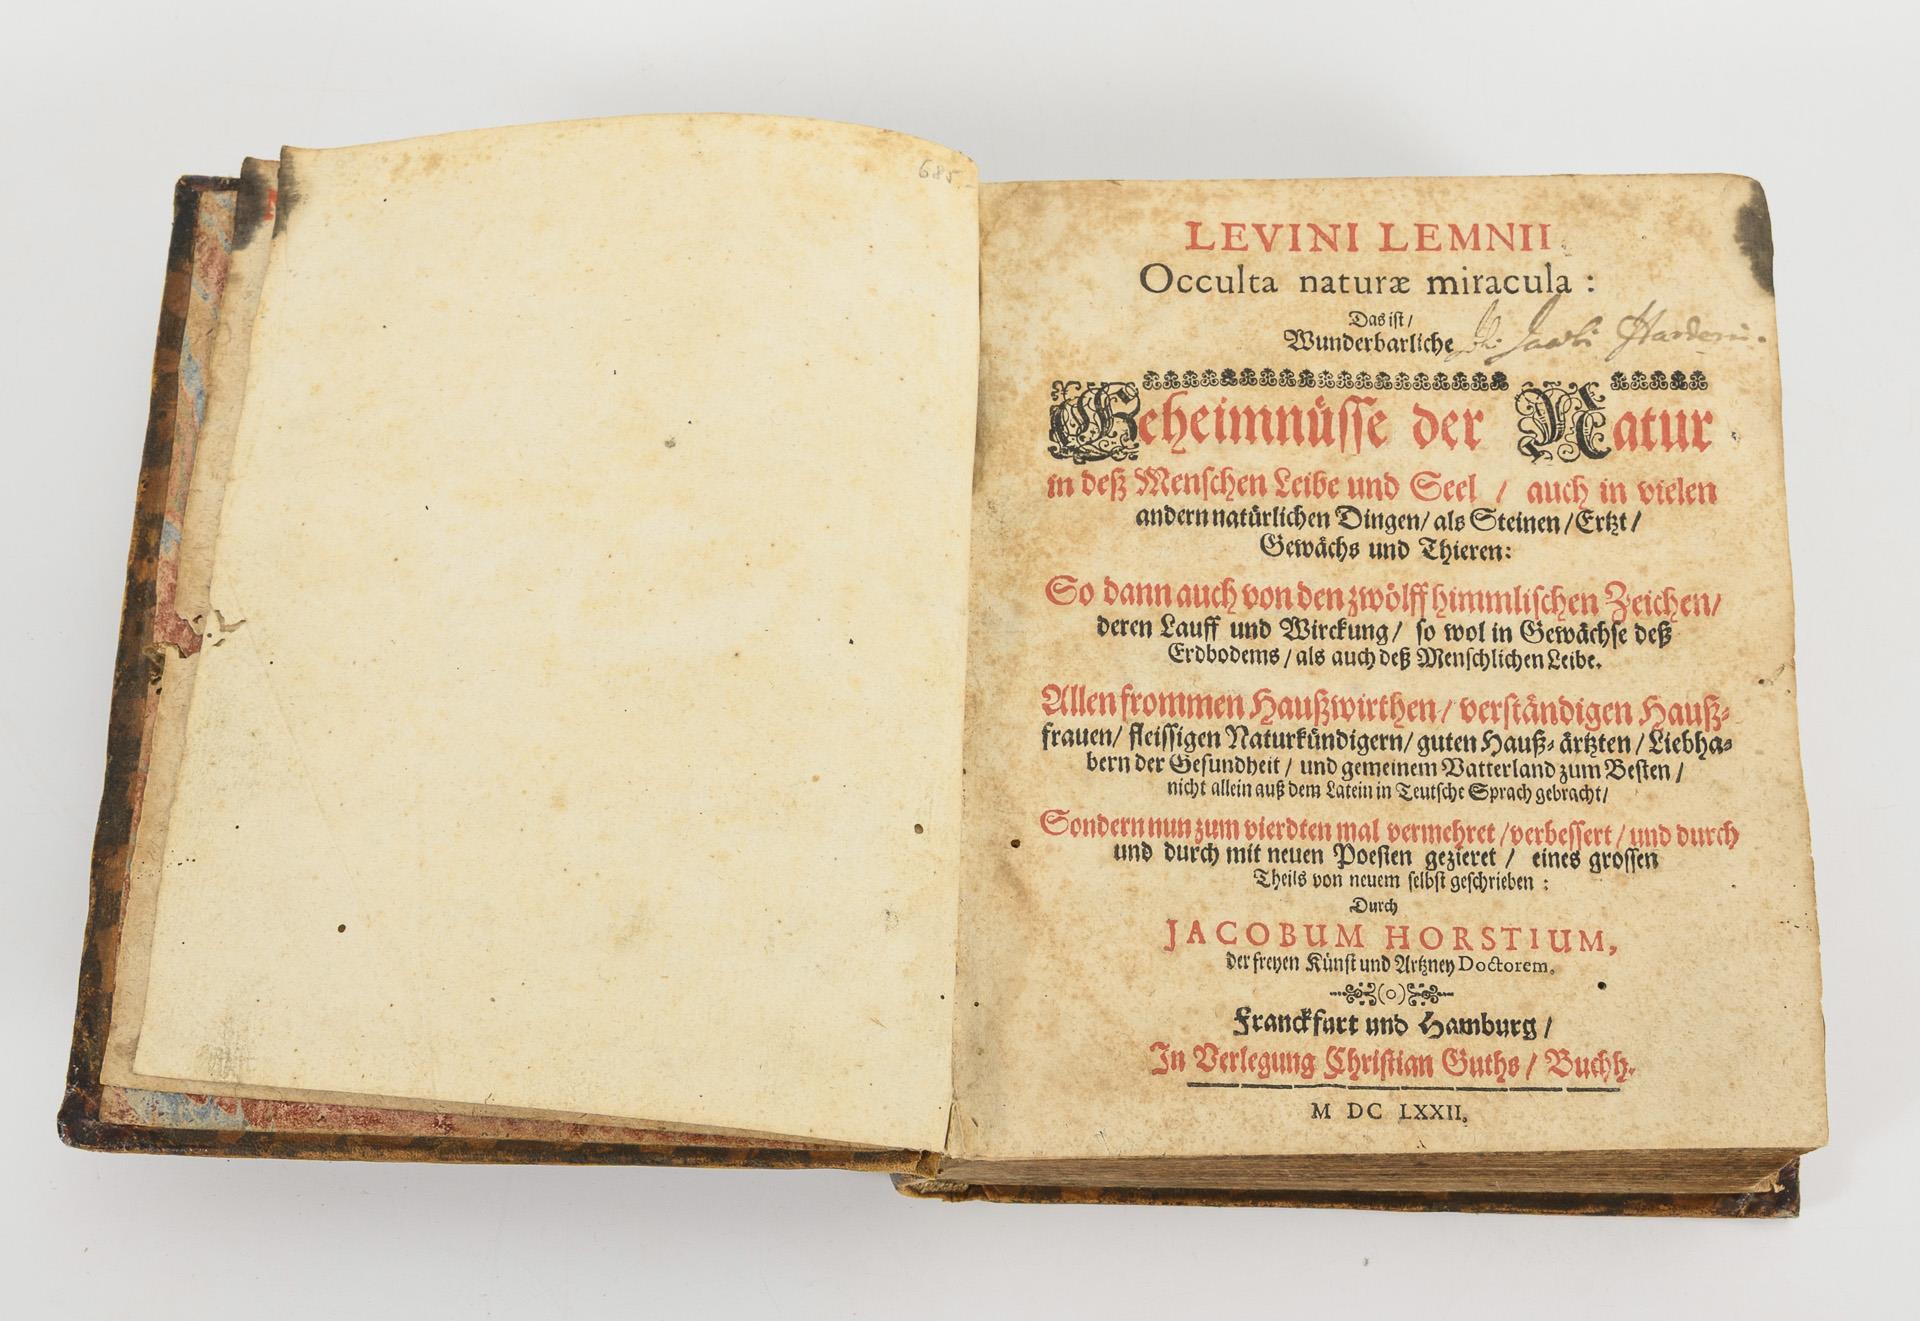 685
LEVINI LEMNII
Occulta naturæ miracula:
Das ist/
Wunderbarliche
Geheimnüsse der Natur
in deß Menschen Leibe und Seel / auch in vielen
andern natürlichen Dingen/ als Steinen/ Ertzt/
Gewächs und Thieren:
So dann auch von den zwölff himmlischen Zeichen/
deren Lauff und Wirckung/ so wol in Gewächse deß
Erdbodems/ als auch deß Menschlichen Leibe.
Allen frommen Haußwirthen/ verständigen Hauß-
frauen/ fleissigen Naturkündigern/ guten Hauß-ärtzten/ Liebha-
bern der Gesundheit/ und gemeinem Vatterland zum Besten/
nicht allein auß dem Latein in Teutsche Sprach gebracht/
Sondern nun zum vierdten mal vermehret/ verbessert/ und durch
und durch mit neuen Poesien gezieret/ eines grossen
Theils von neuem selbst geschrieben:
Durch
JACOBUM HORSTIUM,
der freyen Künst und Artzney Doctorem.
Franckfurt und Hamburg/
In Verlegung Christian Guths/ Buchh.
M DC LXXII.